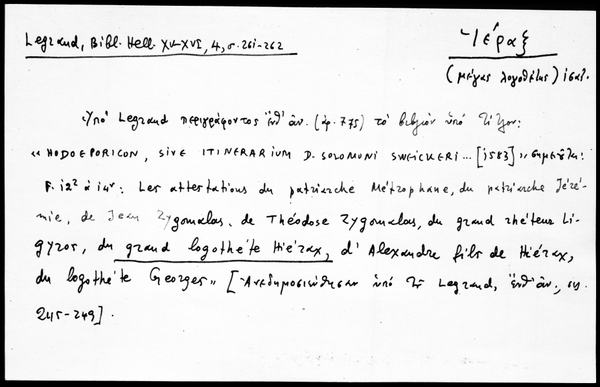 Legrand, Bibl. Hell. XV-XVI, 4, σ. 261-262
Ἱέραξ
(μέγας λογοθέτης) ις΄ αἰ.
Ὑπὸ Legrand περιγράφοντος ἔνθ' ἀν. (ἀρ. 775) τὸ βιβλίον ὑπὸ τίτλον:
« HODOEPORICON, SIVE ITINERARIUM D. SOLOMONI SWEICKERI ... [1583] » σημειοῦται:
F. 12² à 14ʳ: Les attestations du patriarche Métrophane, du patriarche Jéré-
mie, de Jean Zygomalas, de Théodose Zygomalas, du grand rhéteur Li-
gyros, du grand logothéte Hiérax, d'Alexandre fils de Hiérax,
du logothéte Georges » [Ἀναδημοσιεύθησαν ὑπὸ τοῦ Legrand, ἔνθ' ἀν., σσ.
245-249].